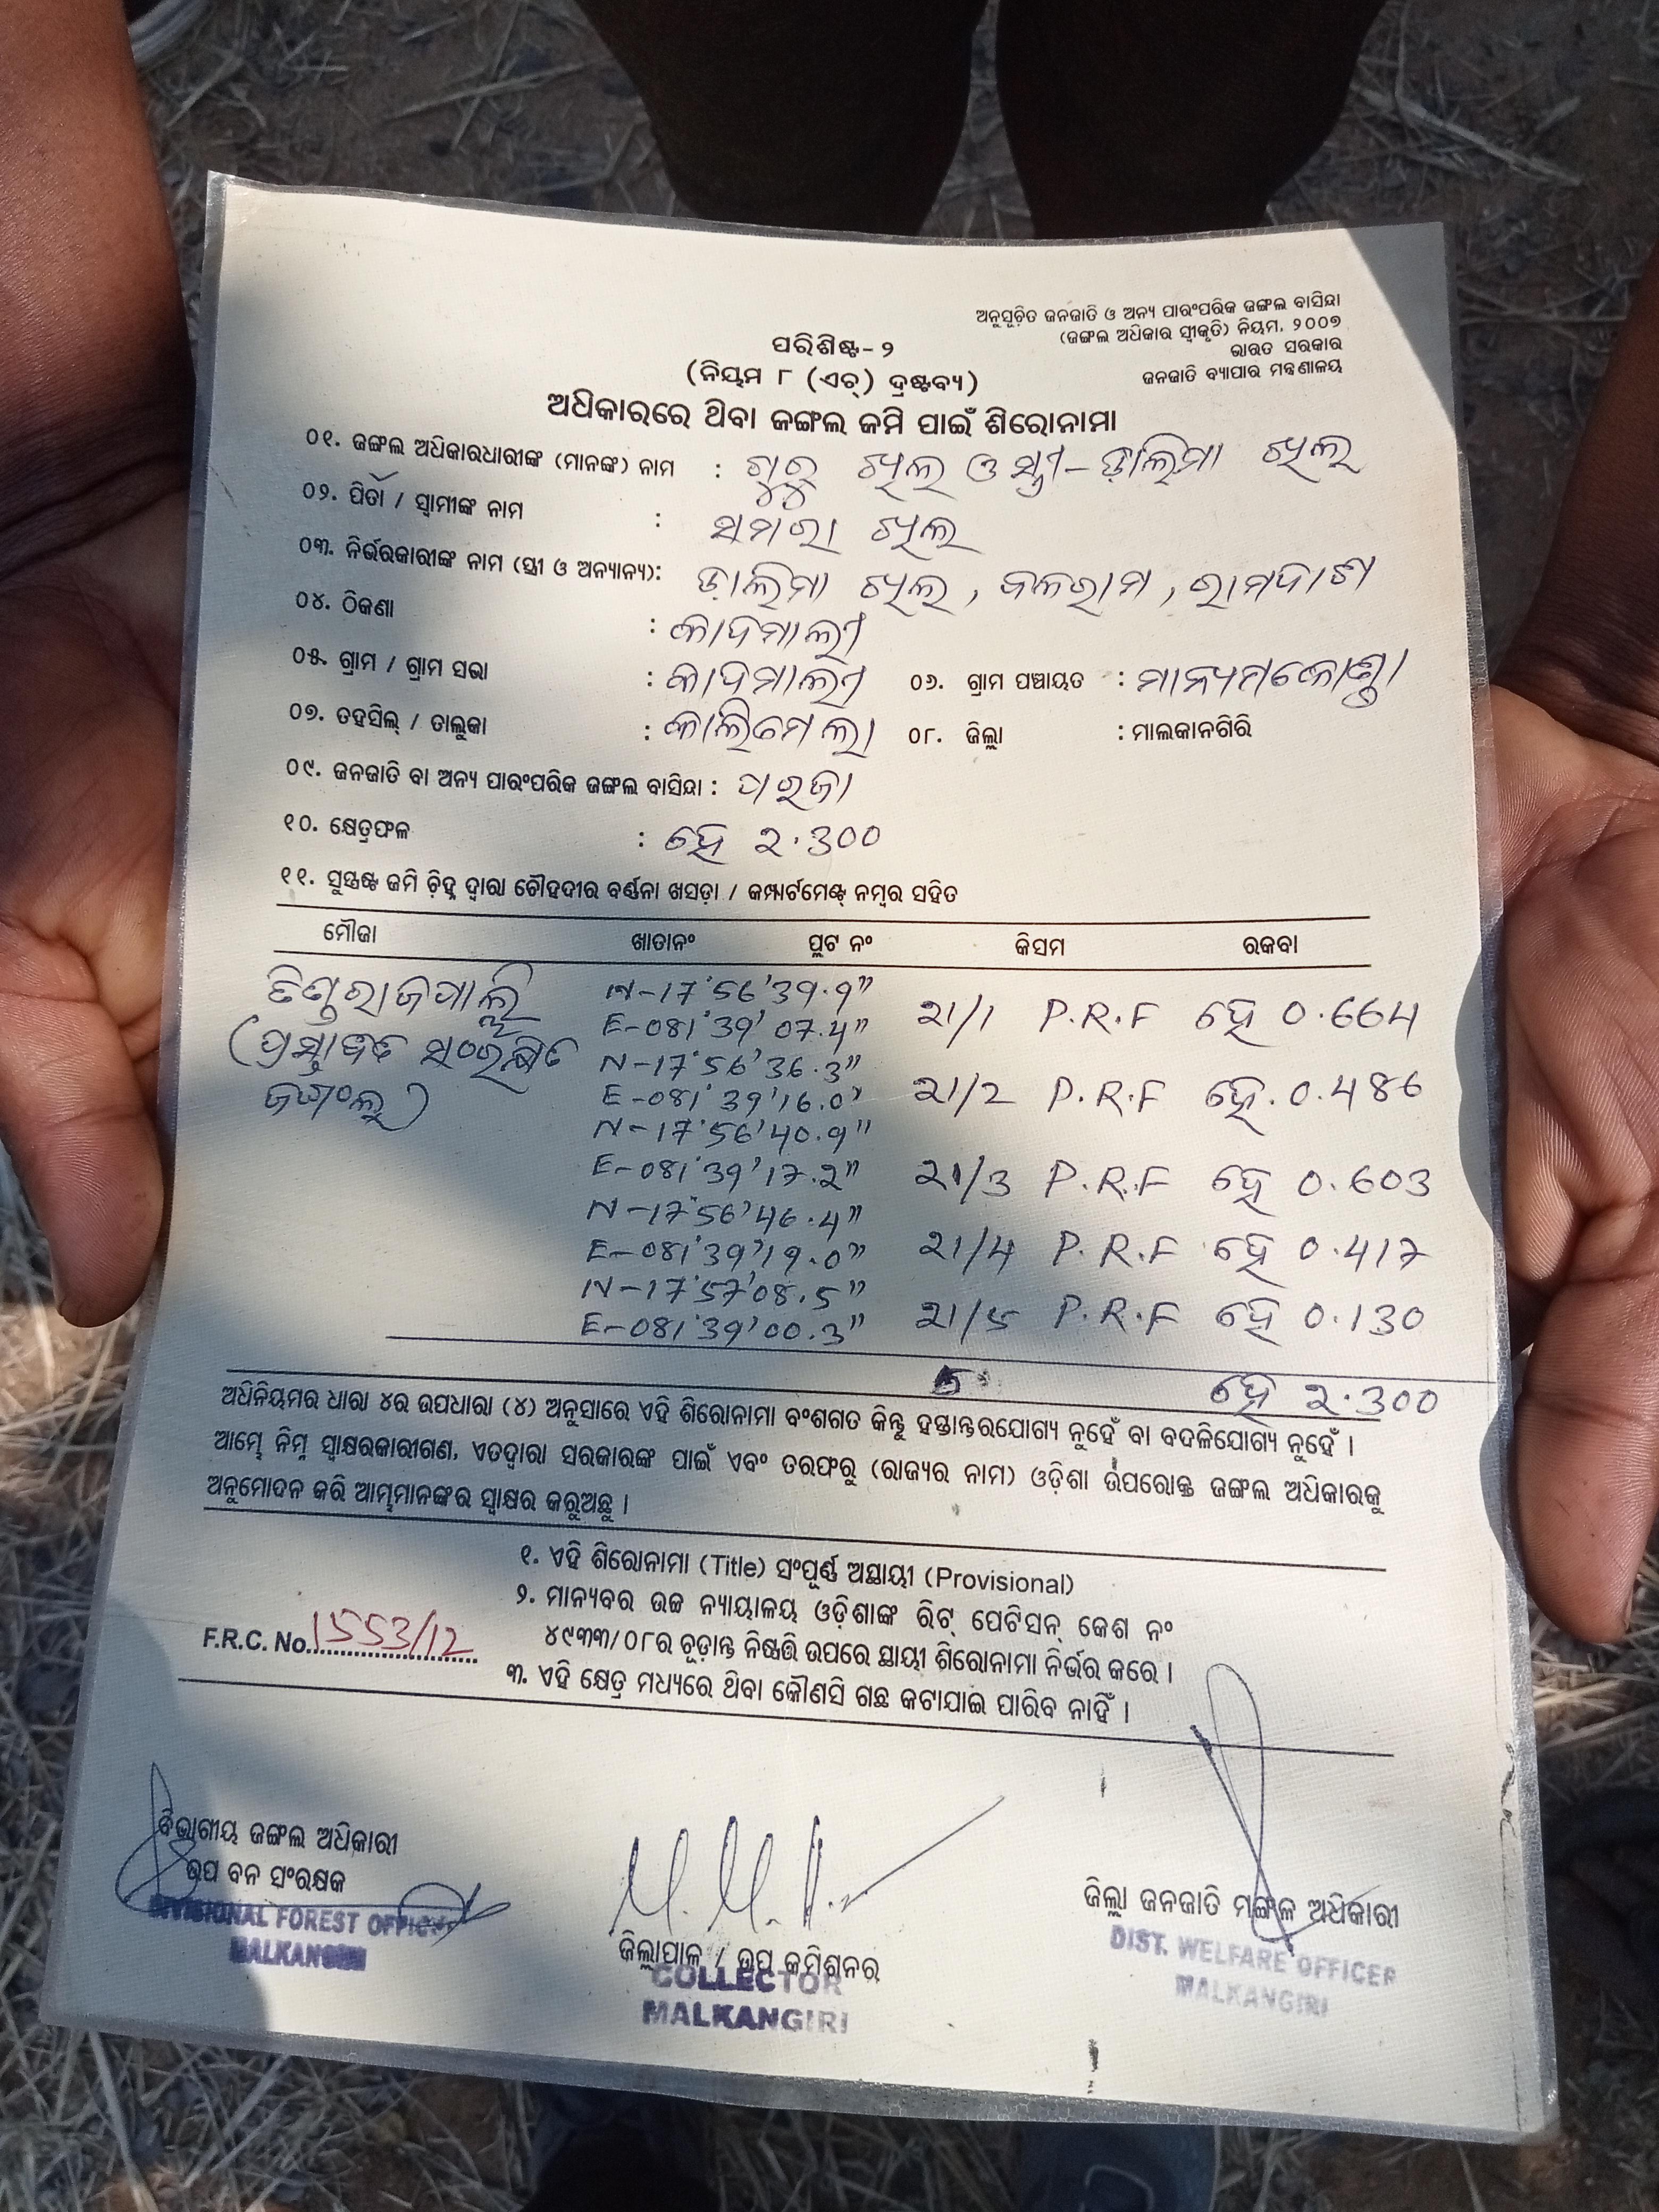 ଅନୁସୂଚିତ ଜନଜାତି ଓ ଅନ୍ୟ ପାରଂପରିକ ଜଙ୍ଗଲ ବାସିନ୍ଦା
(ଜଙ୍ଗଲ ଅଧିକାର ସ୍ୱୀକୃତି) ନିୟମ, ୨୦୦୭
ଭାରତ ସରକାର
ଜନଜାତି ବ୍ୟାପାର ମନ୍ତ୍ରଣାଳୟ
ପରିଶିଷ୍ଟ-୨
(ନିୟମ ୮ (ଏଚ୍) ଦ୍ରଷ୍ଟବ୍ୟ)
ଅଧିକାରରେ ଥିବା ଜଙ୍ଗଲ ଜମି ପାଇଁ ଶିରୋନାମା
୦୧. ଜଙ୍ଗଲ ଅଧିକାରଧାରୀଙ୍କ (ମାନଙ୍କ) ନାମ : ଗୁରୁ ଖିଲ ଓ ସ୍ତ୍ରୀ-ଡ଼ାଲିମା ଖିଲ
୦୨. ପିତା / ସ୍ୱାମୀଙ୍କ ନାମ : ସମରା ଖିଲ
୦୩. ନିର୍ଭରକାରୀଙ୍କ ନାମ (ସ୍ତ୍ରୀ ଓ ଅନ୍ୟାନ୍ୟ): ଡ଼ାଲିମା ଖିଲ, ବଳରାମ, ରାମଦାଶ
୦୪. ଠିକଣା : କାଦମାଲୀ
୦୫. ଗ୍ରାମ / ଗ୍ରାମ ସଭା : କାଦମାଲୀ ୦୬. ଗ୍ରାମ ପଞ୍ଚାୟତ : ମାନ୍ୟମକୋଣ୍ଡା
୦୭. ତହସିଲ୍ / ତାଲୁକା : କାଲିମେଲା ୦୮. ଜିଲ୍ଲା : ମାଲକାନଗିରି
୦୯. ଜନଜାତି ବା ଅନ୍ୟ ପାରଂପରିକ ଜଙ୍ଗଲ ବାସିନ୍ଦା : ପରଜା
୧୦. କ୍ଷେତ୍ରଫଳ : ହେ ୨.300
୧୧. ସୁସ୍ପଷ୍ଟ ଜମି ଚିହ୍ନ ଦ୍ୱାରା ଚୌହଦୀର ବର୍ଣ୍ଣନା ଖସଡ଼ା / କମ୍ପାର୍ଟମେଣ୍ଟ୍ ନମ୍ବର ସହିତ
ମୌଜା ଖାତାନଂ ପ୍ଲଟ ନଂ କିସମ ରକବା
N-17°56'39.9"
E-081°39'07.4" 21/1 P.R.F ହେ 0.664
N-17°56'36.3"
ଜଙ୍ଗଲ) E-081°39'16.0" 21/2 P.R.F ହେ. 0.486
N-17°56'40.9"
E-081°39'17.2" 21/3 P.R.F ହେ 0.603
N-17°56'46.4"
E-081°39'19.0" 21/4 P.R.F ହେ 0.417
N-17°57'08.5"
E-081°39'00.3" 21/5 P.R.F ହେ 0.130
5 ହେ ୨.300
ଅଧିନିୟମର ଧାରା ୪ର ଉପଧାରା (୪) ଅନୁସାରେ ଏହି ଶିରୋନାମା ବଂଶଗତ କିନ୍ତୁ ହସ୍ତାନ୍ତରଯୋଗ୍ୟ ନୁହେଁ ବା ବଦଳିଯୋଗ୍ୟ ନୁହେଁ ।
ଆମ୍ଭେ ନିମ୍ନ ସ୍ୱାକ୍ଷରକାରୀଗଣ, ଏତଦ୍ୱାରା ସରକାରଙ୍କ ପାଇଁ ଏବଂ ତରଫରୁ (ରାଜ୍ୟର ନାମ) ଓଡ଼ିଶା ଉପରୋକ୍ତ ଜଙ୍ଗଲ ଅଧିକାରକୁ
ଅନୁମୋଦନ କରି ଆମ୍ଭମାନଙ୍କର ସ୍ୱାକ୍ଷର କରୁଅଛୁ ।
୧. ଏହି ଶିରୋନାମା (Title) ସଂପୂର୍ଣ୍ଣ ଅସ୍ଥାୟୀ (Provisional)
୨. ମାନ୍ୟବର ଉଚ୍ଚ ନ୍ୟାୟାଳୟ ଓଡ଼ିଶାଙ୍କ ରିଟ୍ ପେଟିସନ୍ କେଶ ନଂ
୪୯୩୩/୦୮ର ଚୂଡ଼ାନ୍ତ ନିଷ୍ପତ୍ତି ଉପରେ ସ୍ଥାୟୀ ଶିରୋନାମା ନିର୍ଭର କରେ ।
F.R.C. No. 1553/12
୩. ଏହି କ୍ଷେତ୍ର ମଧ୍ୟରେ ଥିବା କୌଣସି ଗଛ କଟାଯାଇ ପାରିବ ନାହିଁ ।
ବିଭାଗୀୟ ଜଙ୍ଗଲ ଅଧିକାରୀ
ଉପ ବନ ସଂରକ୍ଷକ
DIVISIONAL FOREST OFFICER
MALKANGIRI
ଜିଲ୍ଲାପାଳ / ଉପ କମିଶନର
COLLECTOR
MALKANGIRI
ଜିଲ୍ଲା ଜନଜାତି ମଙ୍ଗଳ ଅଧିକାରୀ
DIST. WELFARE OFFICER
MALKANGIRI